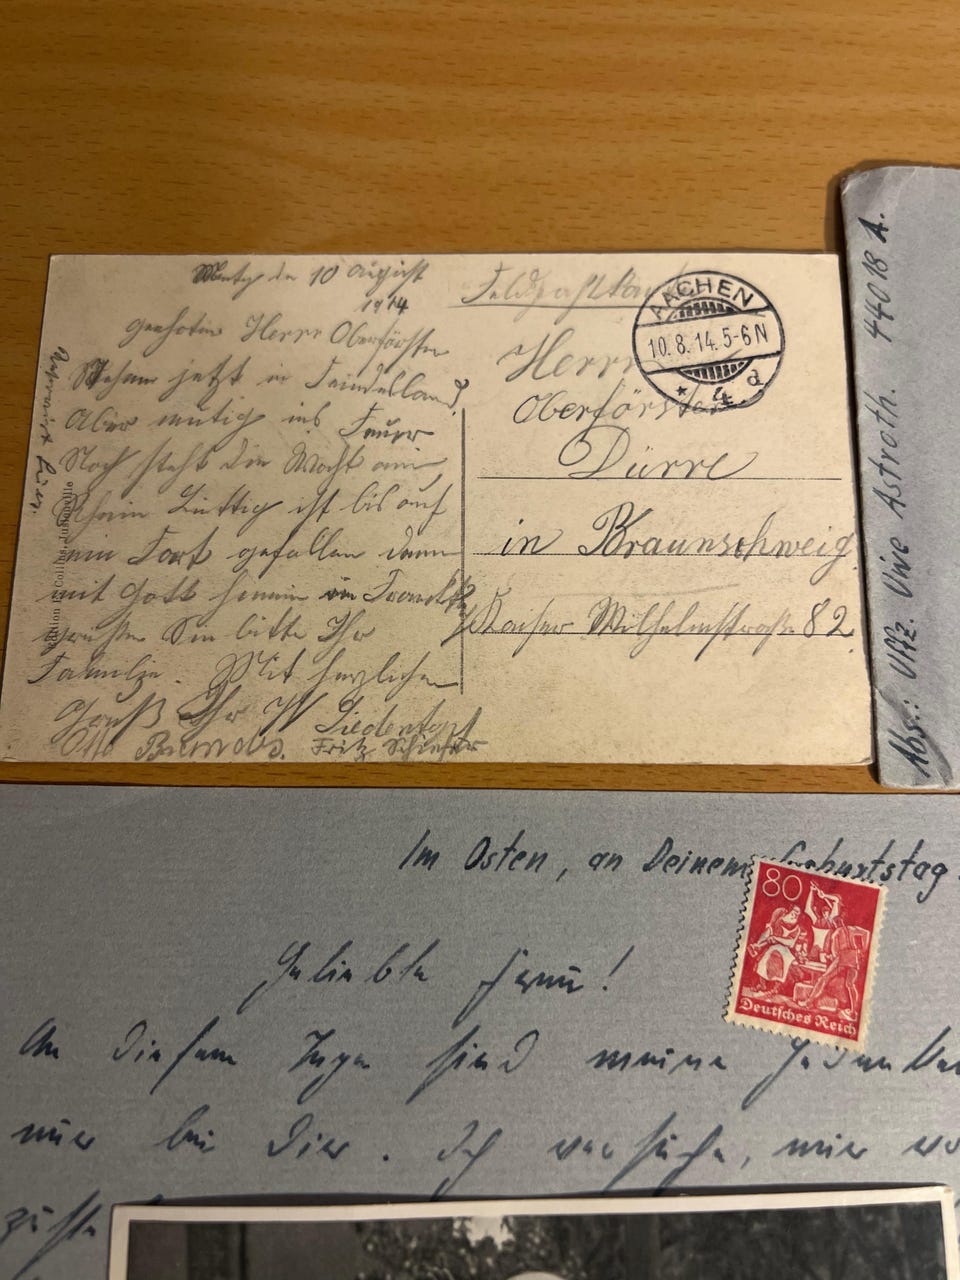 den 10 August
1914
Geehrter Herrr Oberförster
Stehen jetzt in Feindesland
Aber mutig ins Feuer
Noch steht die Wacht am
Rhein Lüttig ist bis auf
ein Fort gefallen dann
mit Gott hinein in
grüßen Sie bitte Ihr
Familie. Mit herzlichen
Gruß Ihr W Siedentopf
Otto Fritz
Feldpostkarte
AACHEN
10.8.14.5-6N
* 4 d
Herrn
Oberförster
Dürre
in Braunschweig
Kaiser Wilhelmstraße 82
Abs.: Uffz. Uwe Astroth. 44018 A.
Im Osten, an Deinem Geburtstag.
80
Deutsches Reich
Geliebte Frau!
An diesem Tage sind meine Gedanken
nur bei Dir. Ich versuche, mir